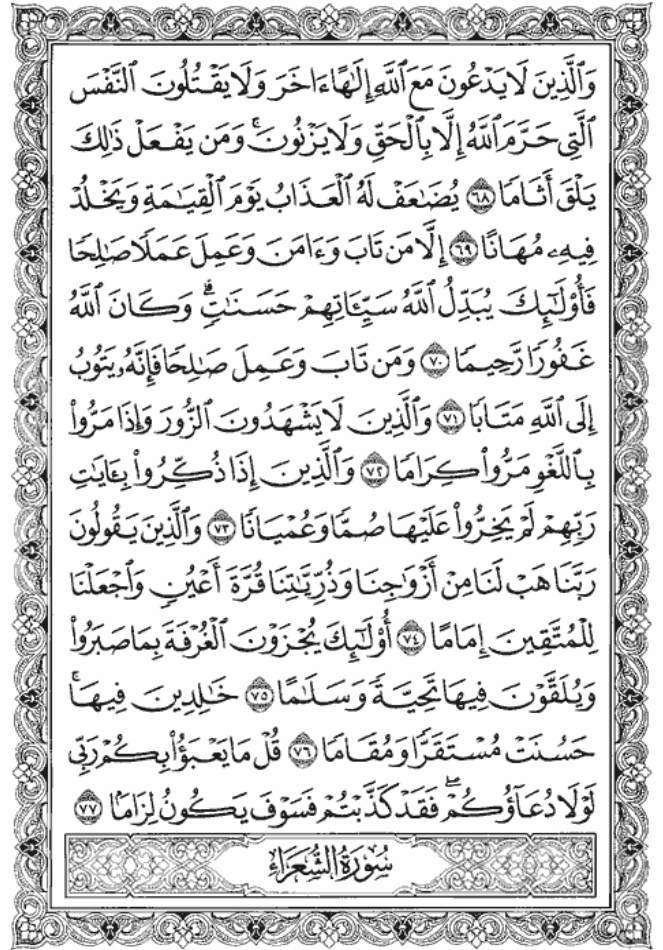 وَٱلَّذِينَ لَا يَدْعُونَ مَعَ ٱللَّهِ إِلَٰهًا ءَاخَرَ وَلَا يَقْتُلُونَ ٱلنَّفْسَ
ٱلَّتِى حَرَّمَ ٱللَّهُ إِلَّا بِٱلْحَقِّ وَلَا يَزْنُونَ ۚ وَمَن يَفْعَلْ ذَٰلِكَ
يَلْقَ أَثَامًا ٦٨ يُضَٰعَفْ لَهُ ٱلْعَذَابُ يَوْمَ ٱلْقِيَٰمَةِ وَيَخْلُدْ
فِيهِۦ مُهَانًا ٦٩ إِلَّا مَن تَابَ وَءَامَنَ وَعَمِلَ عَمَلًا صَٰلِحًا
فَأُو۟لَٰٓئِكَ يُبَدِّلُ ٱللَّهُ سَيِّـَٔاتِهِمْ حَسَنَٰتٍ ۗ وَكَانَ ٱللَّهُ
غَفُورًا رَّحِيمًا ٧٠ وَمَن تَابَ وَعَمِلَ صَٰلِحًا فَإِنَّهُۥ يَتُوبُ
إِلَى ٱللَّهِ مَتَابًا ٧١ وَٱلَّذِينَ لَا يَشْهَدُونَ ٱلزُّورَ وَإِذَا مَرُّوا۟
بِٱللَّغْوِ مَرُّوا۟ كِرَامًا ٧٢ وَٱلَّذِينَ إِذَا ذُكِّرُوا۟ بِـَٔايَٰتِ
رَبِّهِمْ لَمْ يَخِرُّوا۟ عَلَيْهَا صُمًّا وَعُمْيَانًا ٧٣ وَٱلَّذِينَ يَقُولُونَ
رَبَّنَا هَبْ لَنَا مِنْ أَزْوَٰجِنَا وَذُرِّيَّٰتِنَا قُرَّةَ أَعْيُنٍ وَٱجْعَلْنَا
لِلْمُتَّقِينَ إِمَامًا ٧٤ أُو۟لَٰٓئِكَ يُجْزَوْنَ ٱلْغُرْفَةَ بِمَا صَبَرُوا۟
وَيُلَقَّوْنَ فِيهَا تَحِيَّةً وَسَلَٰمًا ٧٥ خَٰلِدِينَ فِيهَا ۚ
حَسُنَتْ مُسْتَقَرًّا وَمُقَامًا ٧٦ قُلْ مَا يَعْبَؤُا۟ بِكُمْ رَبِّى
لَوْلَا دُعَآؤُكُمْ ۖ فَقَدْ كَذَّبْتُمْ فَسَوْفَ يَكُونُ لِزَامًۢا ٧٧
سُورَةُ الشُّعَرَاءِ